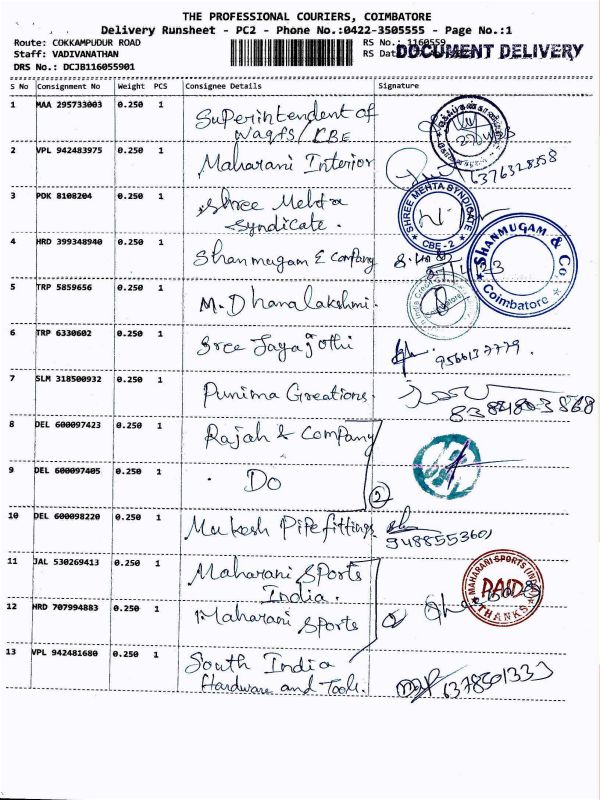 THE PROFESSIONAL COURIERS, COIMBATORE
Delivery Runsheet - PC2 - Phone No.:0422-3505555 - Page No.:1
Route: COKKAMPUDUR ROAD RS No.: 1160559
Staff: VADIVANATHAN RS Dat
DOCUMENT DELIVERY
DRS No.: DCJB116055901
S No Consignment No Weight PCS Consignee Details Signature
1 MAA 295733003 0.250 1 Superintendent of
Waqfs/CBE
2 VPL 942483975 0.250 1 Maharani Interior 6376328358
3 PDK 8108204 0.250 1 Shree Mehta
Syndicate.
SHREE MEHTA SYNDICATE
CBE - 2
4 HRD 399348940 0.250 1 Shanmugam & Company
SHANMUGAM & Co
Coimbatore
5 TRP 5859656 0.250 1 M. Dhanalakshmi.
6 TRP 6330602 0.250 1 Sree Jayajothi 9566137779.
7 SLM 318500932 0.250 1 Punima Creations.
8 DEL 600097423 0.250 1 Rajah & Company
9 DEL 600097405 0.250 1 Do 2
10 DEL 600098220 0.250 1 Mukesh Pipefittings. 9488553601
11 JAL 530269413 0.250 1 Maharani Sports
India.
MAHARANI SPORTS (IND
PAID
THANKS
12 HRD 707994883 0.250 1 Maharani Sports
13 VPL 942481680 0.250 1 South India
Hardware and Tools. 6378501333